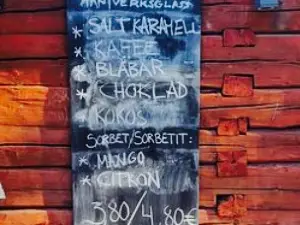 HANTVERKSGLASS
* SALTKARAMELL
* KAFFE
* BLÅBÄR
* CHOKLAD
KOKOS
SORBET/SORBETIT:
* MANGO
* CITRON
3.80/4.80€